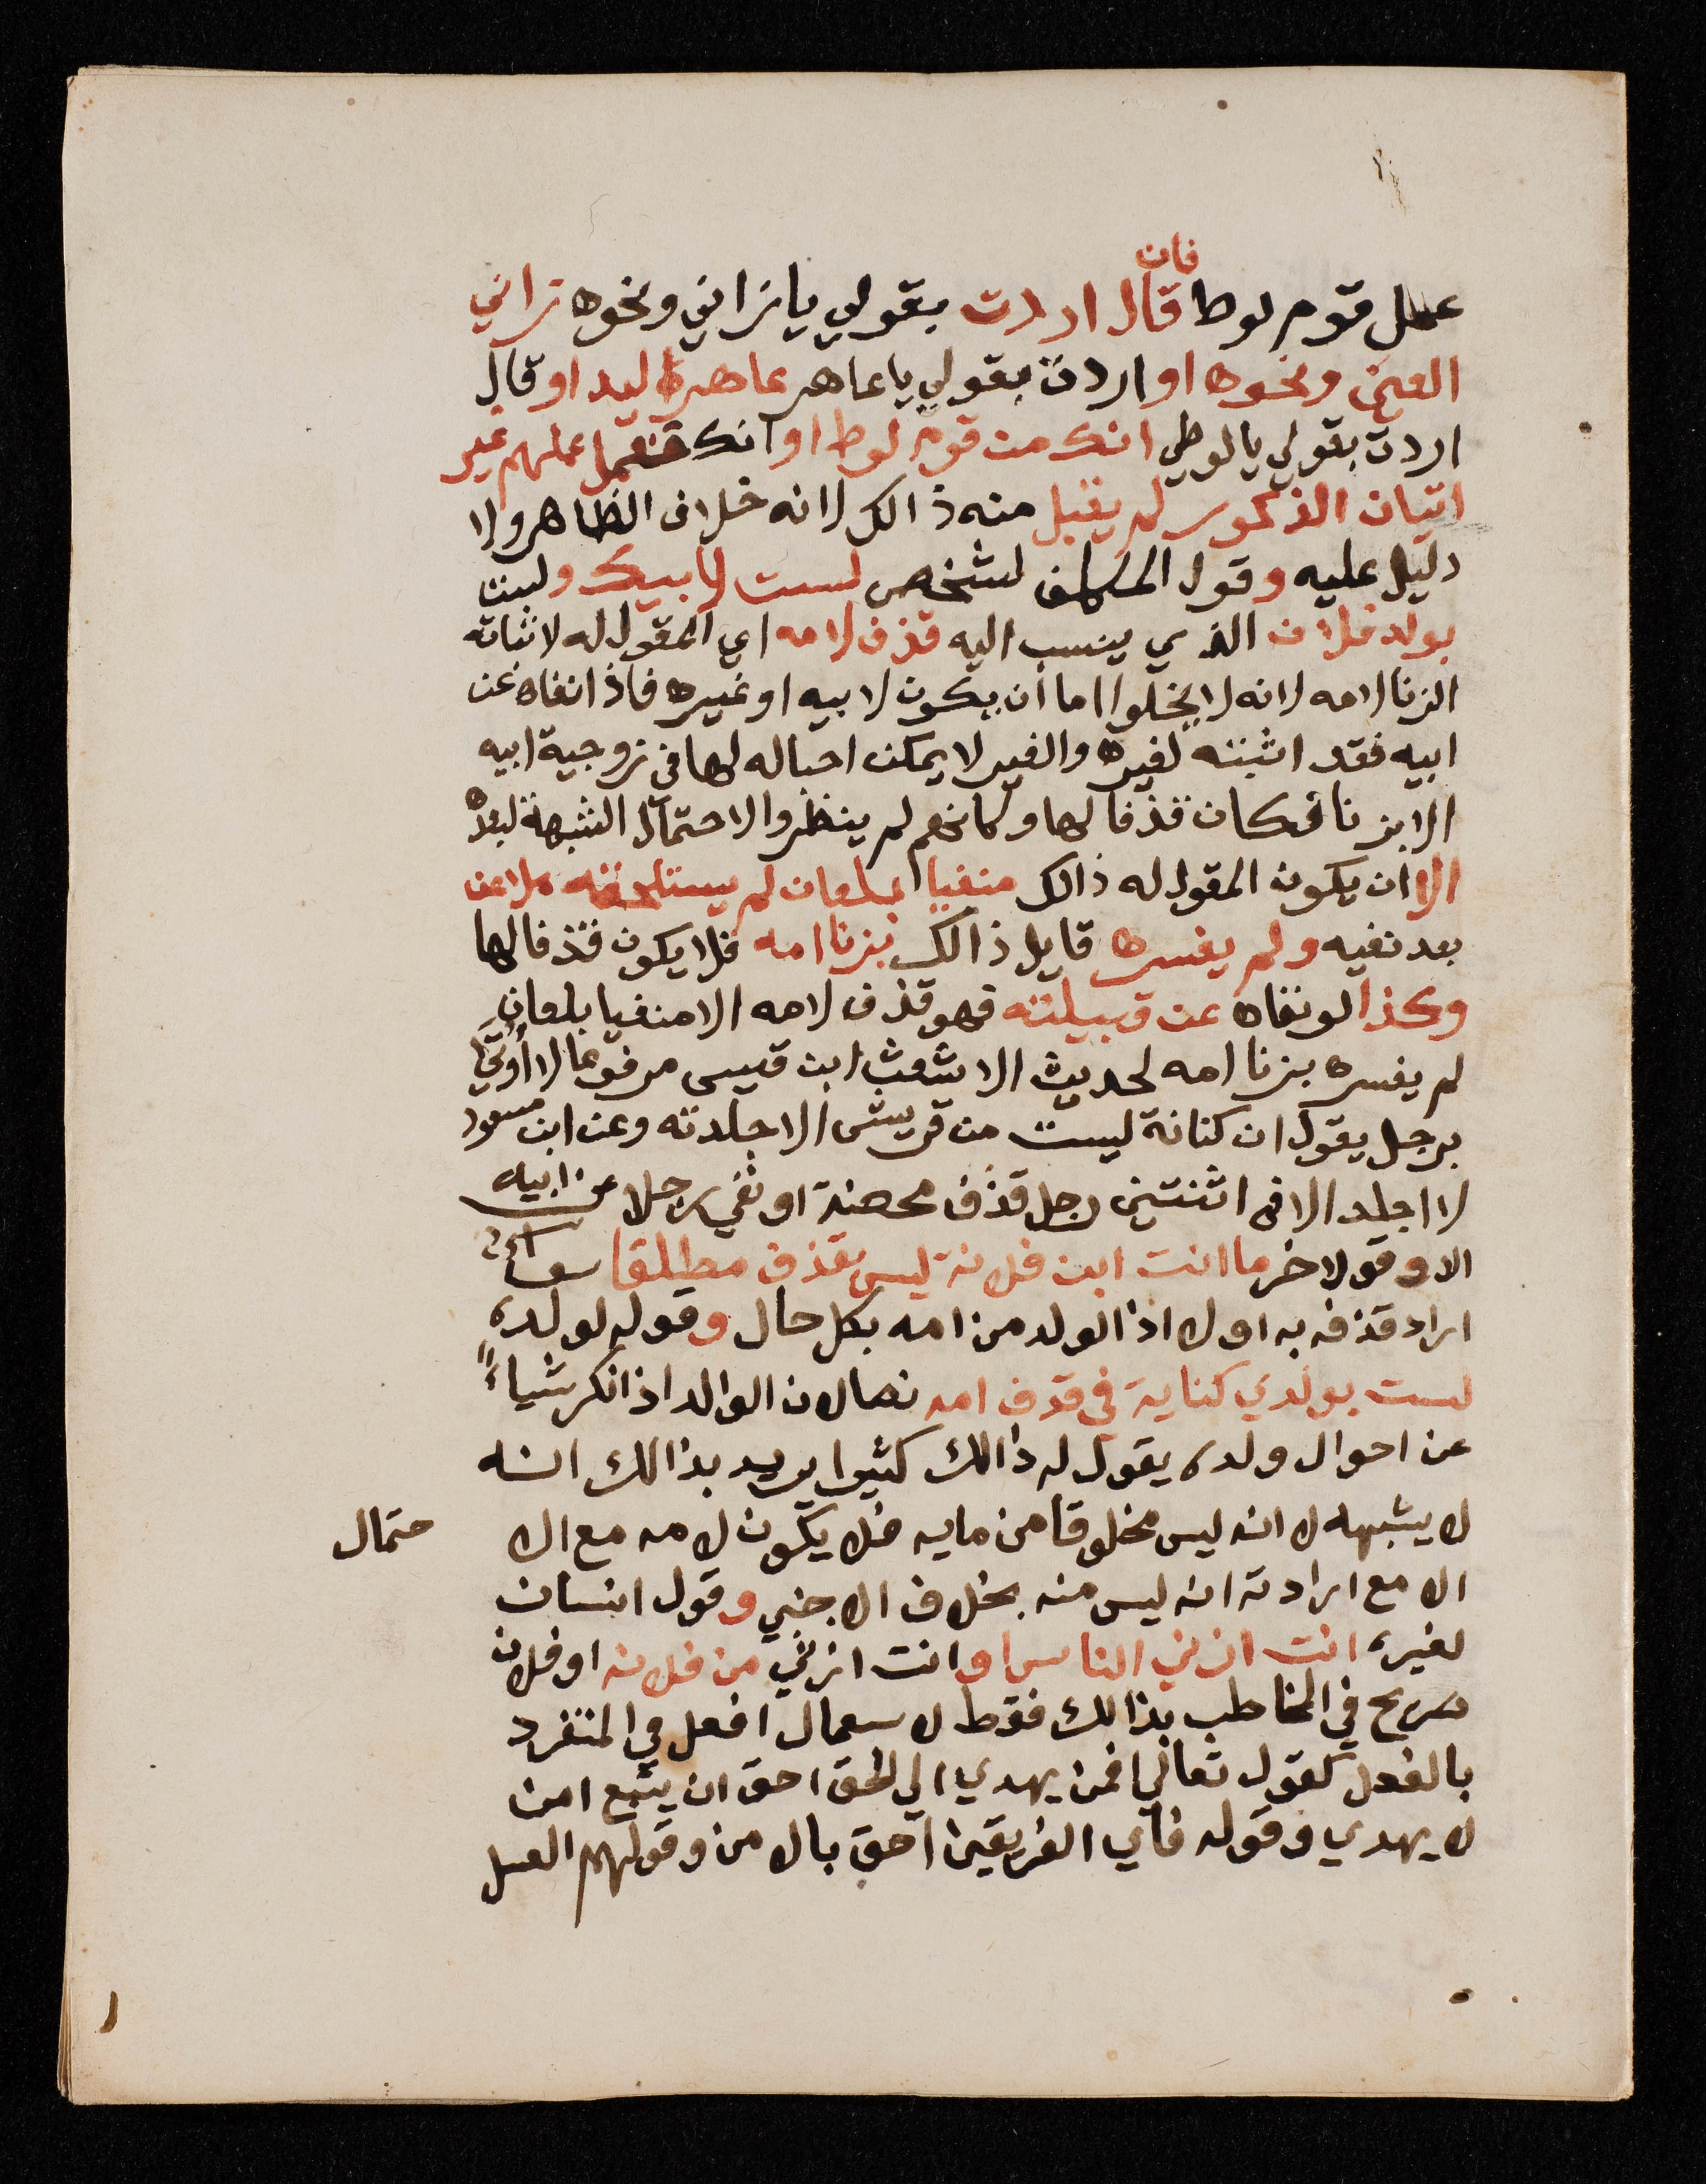 فان
عمل قوم لوط قال اردت بقولي يا زاني ونحوه زاني
العين ونحوه او اردت بقولي يا عاهر عاهرة اليد او قال
اردت بقولي يا لوطي انك من قوم لوط او انك تعمل عملهم غير
اتيان الذكور لم يقبل منه ذالك لانه خلاف الظاهر ولا
دليل عليه وقول المكلف لشخص لست لابيك ولست
بولد فلان الذي ينسب اليه قذف لامه اي المقول له لاثباته
الزنا لامه لانه لا يخلوا اما ان يكون لابيه او غيره فاذا نفاه عن
ابيه فقد اثبته لغيره والغير لا يمكن احباله لها في زوجية ابيه
الا بزنا فكان قذفا لها وكانهم لم ينظروا لاحتمال الشبهة لبعده
الا ان يكون المقول له ذالك منفيا بلعان لم يستلحقه ملاعن
بعد نفيه ولم يفسره قايل ذالك بزنا امه فلا يكون قذفا لها
وكذا لو نفاه عن قبيلته فهو قذف لامه الا منفيا بلعان
لم يفسره بزنا امه لحديث الاشعث ابن قيس مرفوعا لا اوتى
برجل يقول ان كنانة ليست من قريش الا جلدته وعن ابن مسعود
لا اجلد الا في اثنتين رجل قذف محصنة او نفي رجلا عن ابيه
الا وقول اخر ما انت ابن فلانة ليس بقذف مطلقا سواء
اراد قذفه به اولا اذ الولد من امه بكل حال وقوله لولده
لست بولدي كناية في قذف امه نصا لان الوالد اذا نكر شياءً
عن احوال ولده يقول له ذالك كثيرا يريد بذالك انه
لا يشبهه لا انه ليس مخلوقا من مايه فلا يكون لامه مع الا حتمال
الا مع ارادته انه ليس منه بخلاف الاجنبي وقول انسان
لغيره انت ازني الناس او انت ازني من فلانه او فلان
صريح في المخاطب بذالك فقط لاستعمال افعل في المنفرد
بالفعل كقوله تعالى افمن يهدي الي الحق احق ان يتبع امن
لا يهدي وقوله فاي الفريقين احق بالامن وقولهم العسل